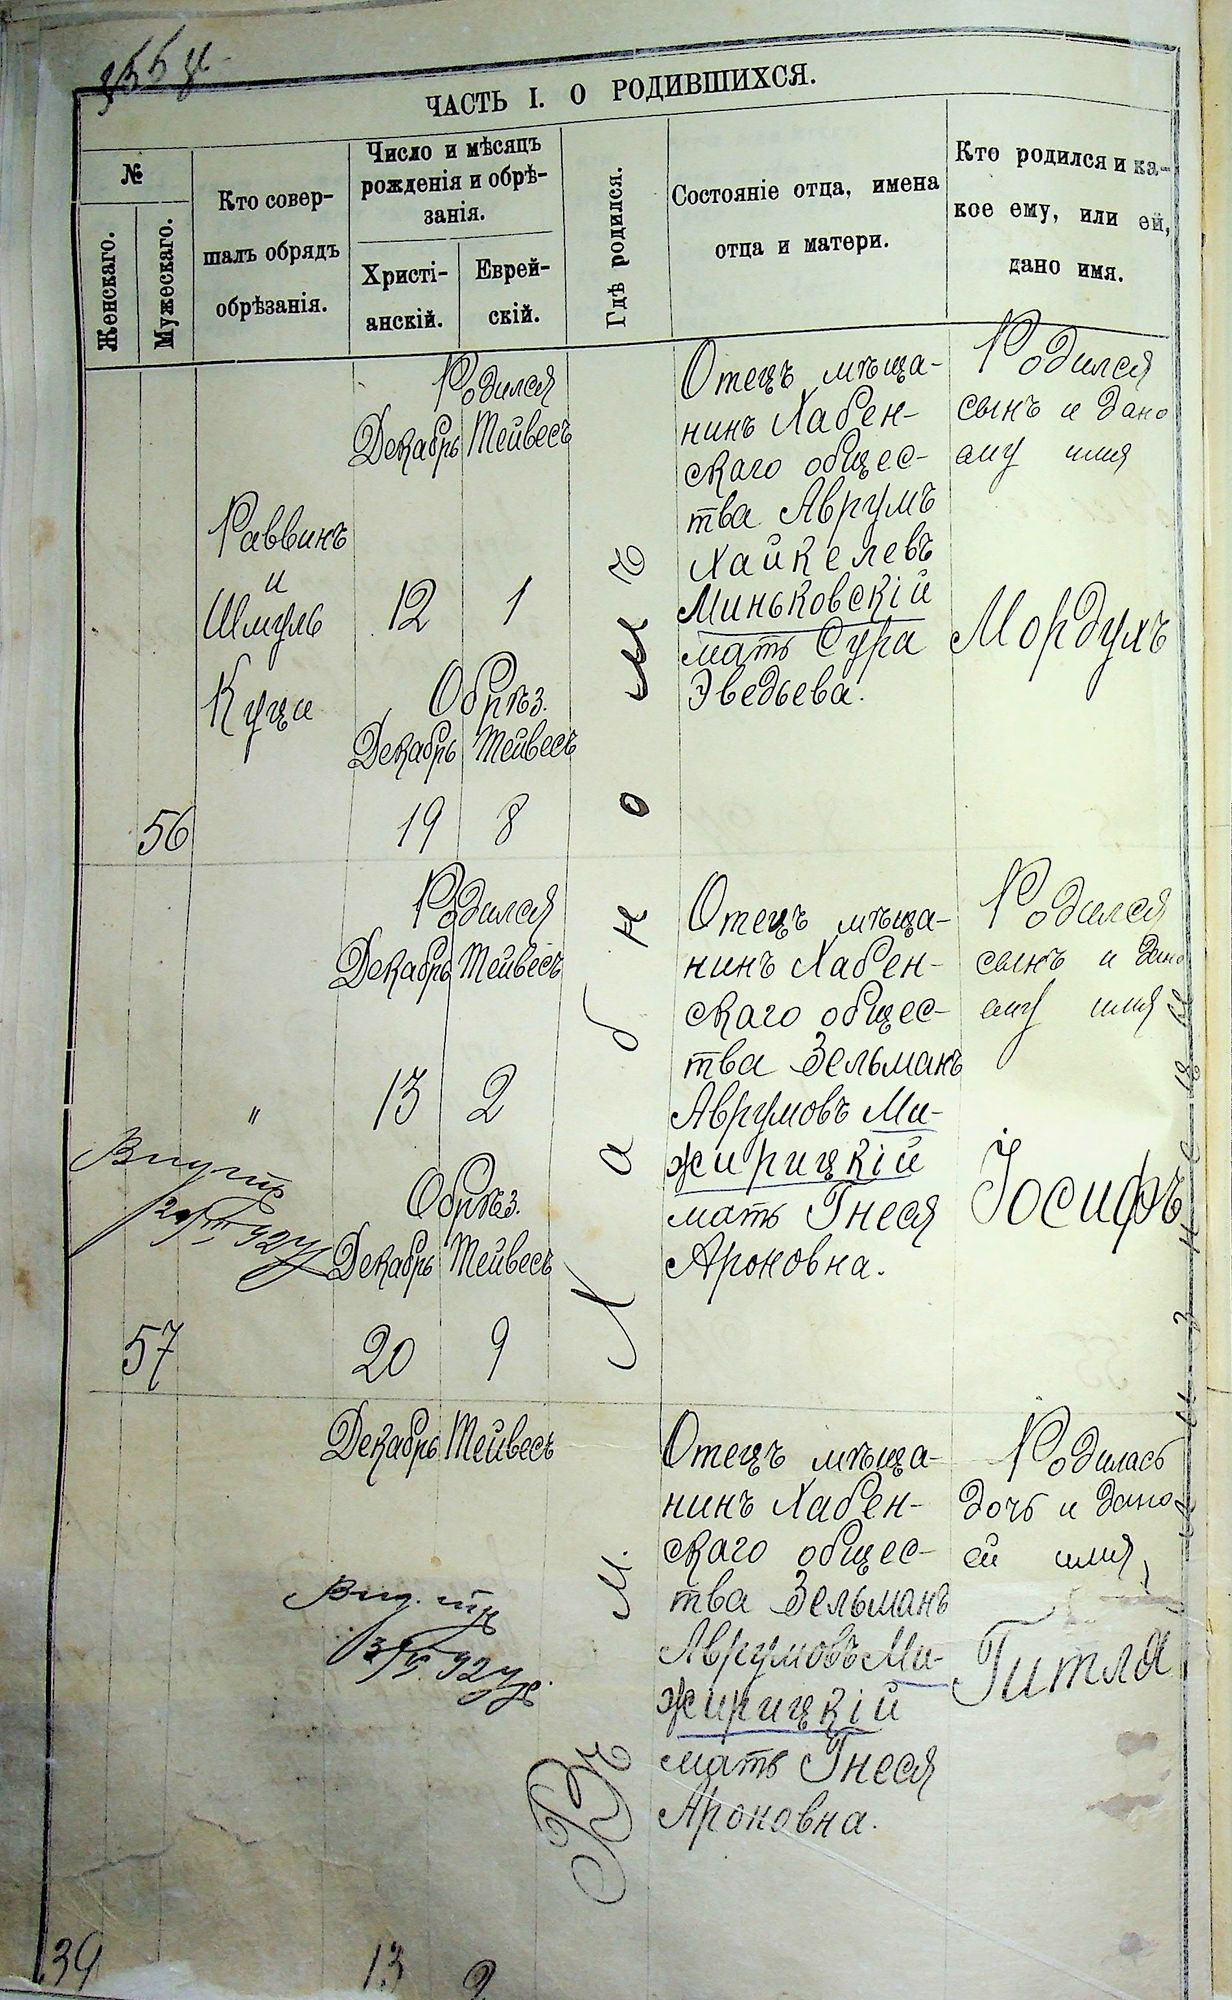 ЧАСТЬ I. О РОДИВШИХСЯ.
№
Женскаго.
Мужескаго.
Кто совер-
шалъ обрядъ
обрѣзанія.
Число и мѣсяцъ
рожденія и обрѣ-
занія.
Христі-
анскій.
Еврей-
скій.
Гдѣ родился.
Состояніе отца, имена
отца и матери.
Кто родился и ка-
кое ему, или ей,
дано имя.
56
Раввинъ
и
Шмуль
Куци
Родился
Декабрь Тейвесъ
12 1
Обрѣз.
Декабрь Тейвесъ
19 8
Въ м. Хабномъ
Отецъ мѣща-
нинъ Хабен-
скаго общес-
тва Аврумъ
Хайкелевъ
Миньковскій
мать Сура
Эведьева.
Родился
сынъ и дано
ему имя
Мордухъ
57
"
Родился
Декабрь Тейвесъ
13 2
Обрѣз.
Декабрь Тейвесъ
20 9
Отецъ мѣща-
нинъ Хабен-
скаго общес-
тва Зельманъ
Аврумовъ Ми-
жирицкій
мать Гнеся
Ароновна.
Родился
сынъ и дано
ему имя
Іосифъ
39
Декабрь Тейвесъ
13 2
Отецъ мѣща-
нинъ Хабен-
скаго общес-
тва Зельманъ
Аврумовъ Ми-
жирицкій
мать Гнеся
Ароновна.
Родилась
дочь и дано
ей имя
Гитля